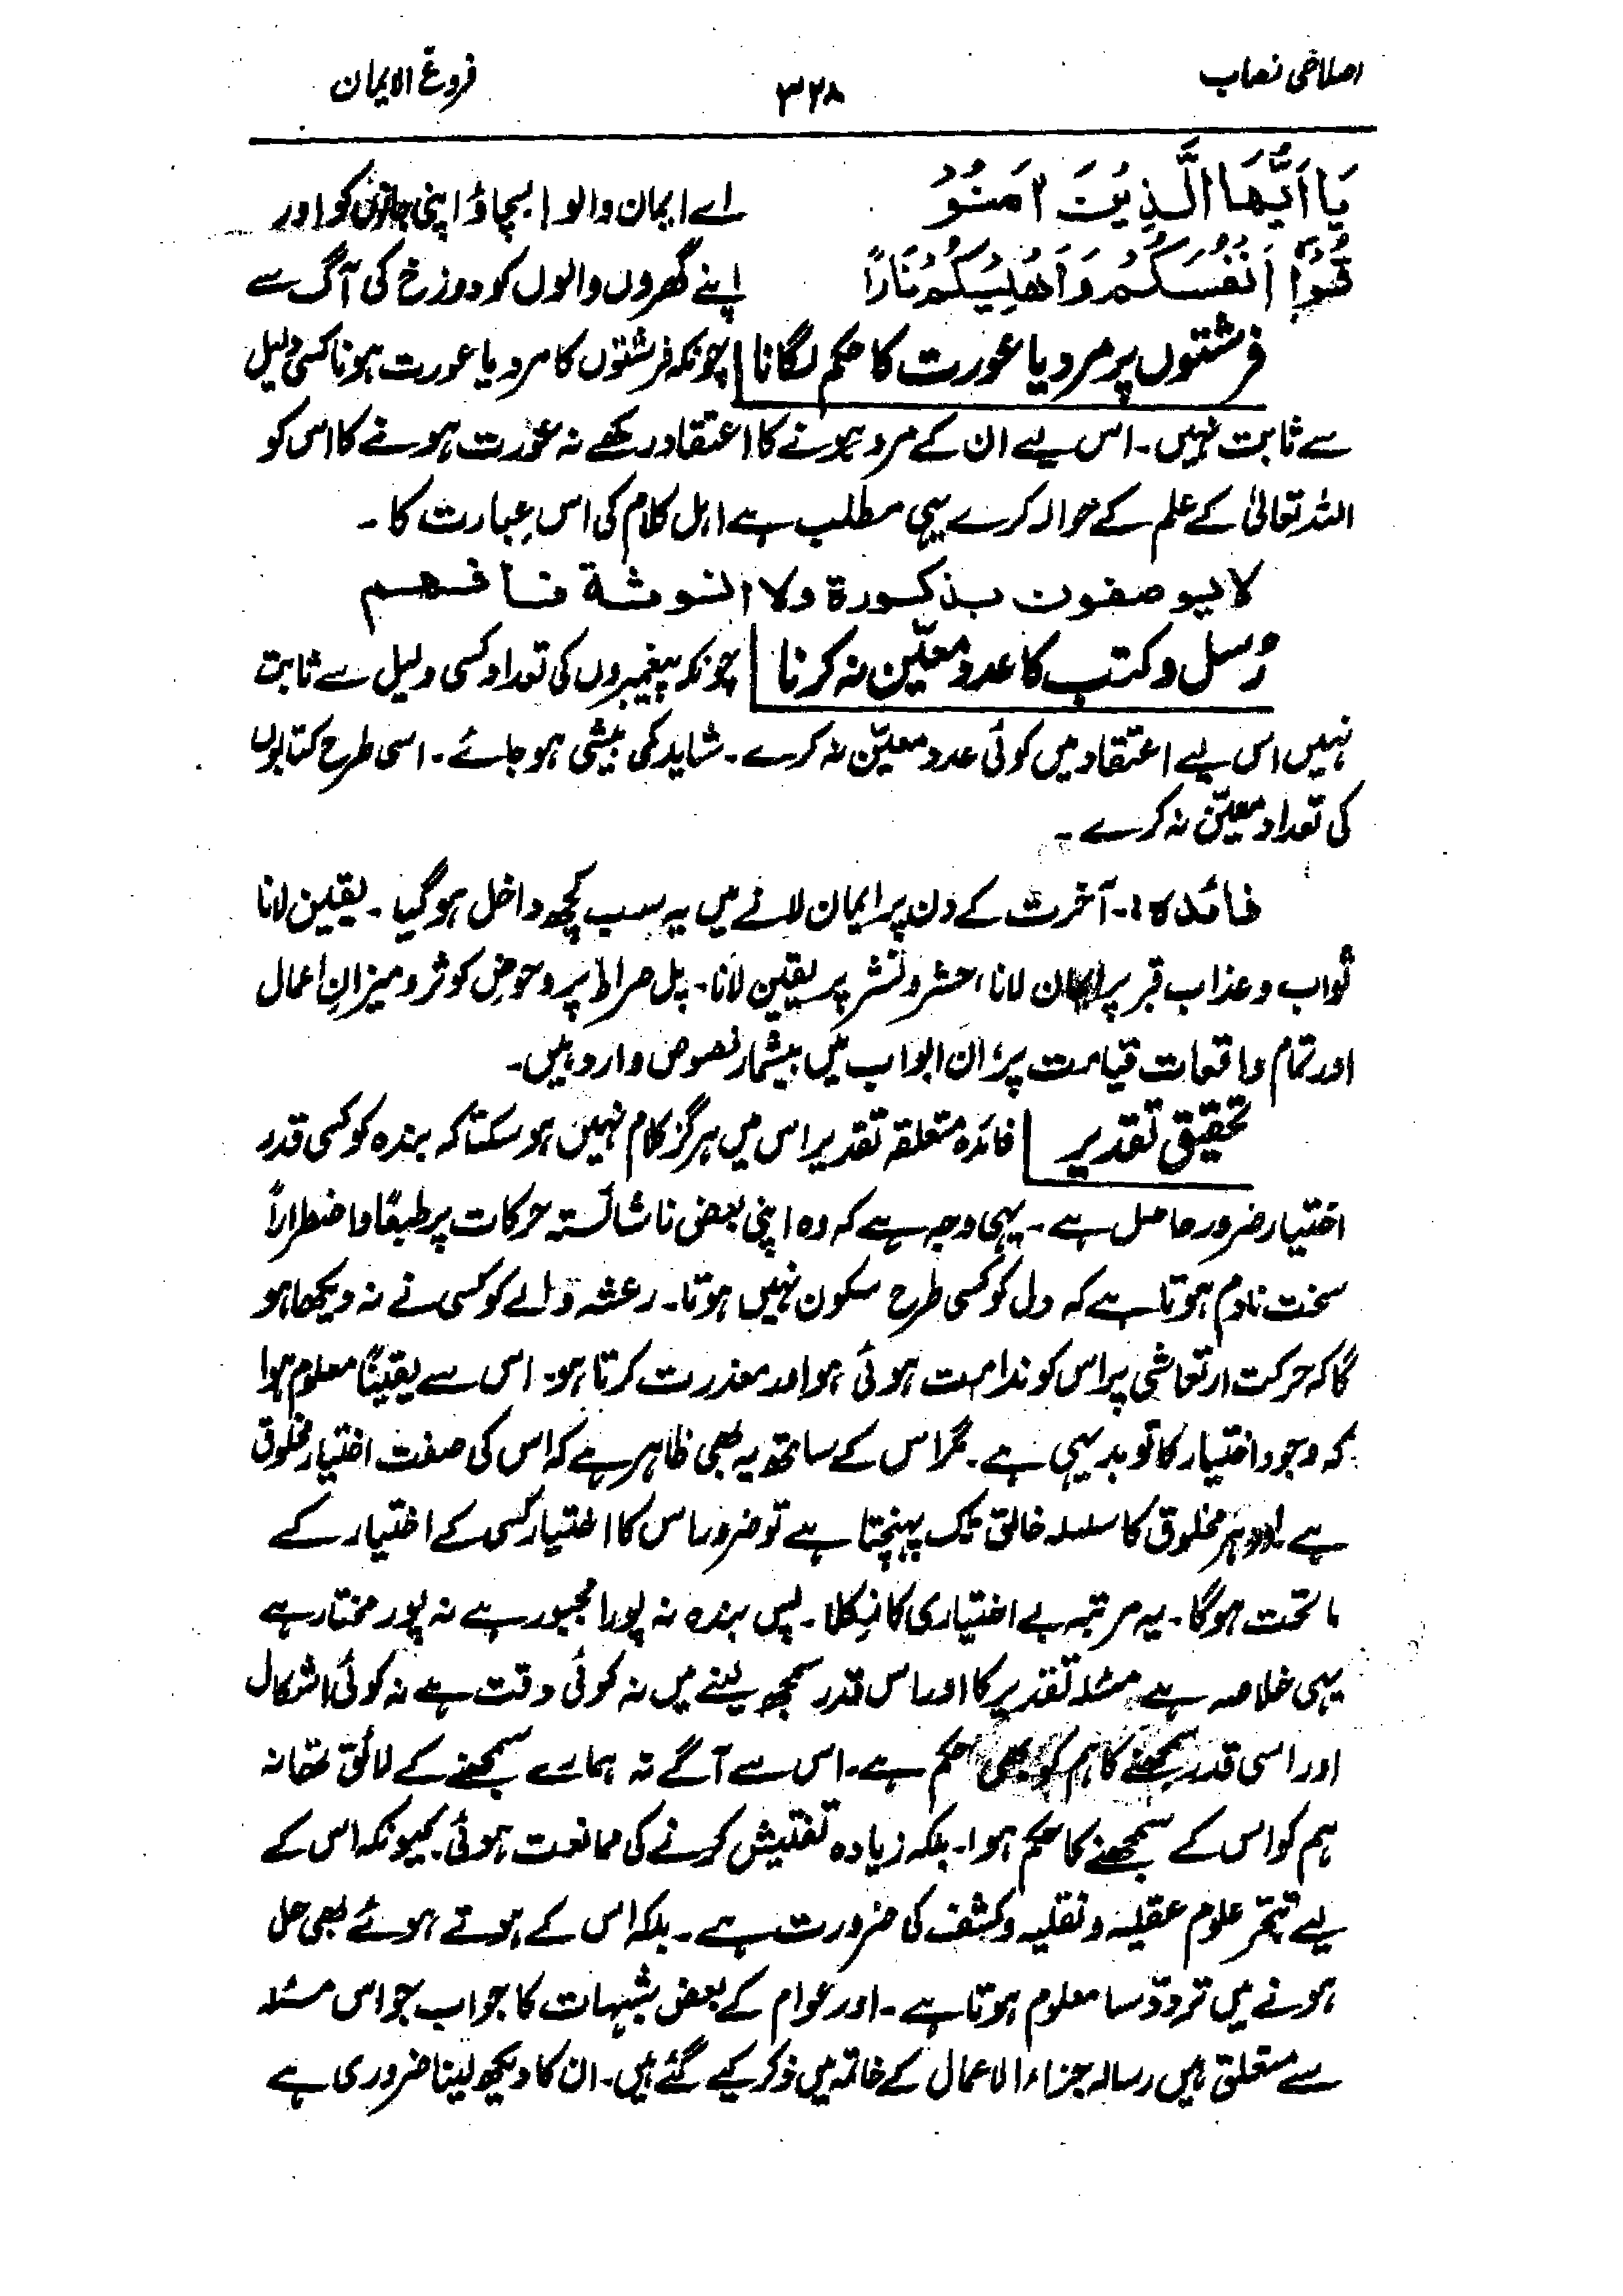 اصلاحی نصاب
۳۲۸
فروع الایمان
یَا اَیُّهَا الَّذِیْنَ اٰمَنُوْ
اے ایمان والو! بچاؤ اپنی جانوں کو اور
قُوْا اَنْفُسَکُمْ وَاَهْلِیْکُمْ نَارًا
اپنے گھروں والوں کو دوزخ کی آگ سے
فرشتوں پر مرد یا عورت کا حکم لگانا چونکہ فرشتوں کا مرد یا عورت ہونا کسی دلیل
سے ثابت نہیں۔ اس لیے ان کے مرد ہونے کا اعتقاد رکھے نہ عورت ہونے کا اس کو
اللہ تعالیٰ کے علم کے حوالہ کرے یہی مطلب ہے اہل کلام کی اس عبارت کا۔
لا یوصفون بذکورة ولا انوثة فافهم
رُسل و کتب کا عدد معیّن نہ کرنا چونکہ پیغمبروں کی تعداد کسی دلیل سے ثابت
نہیں اس لیے اعتقاد میں کوئی عدد معیّن نہ کرے۔ شاید کمی بیشی ہو جائے۔ اسی طرح کتابوں
کی تعداد معیّن نہ کرے۔
فائدہ:۔ آخرت کے دن پر ایمان لانے میں یہ سب کچھ داخل ہو گیا۔ یقین لانا
ثواب و عذاب قبر پر ایمان لانا، حشر و نشر پر یقین لانا۔ پل صراط پر و حوضِ کوثر و میزانِ اعمال
اور تمام واقعات قیامت پر، ان ابواب میں بیشمار نصوص وارد ہیں۔
تحقیق تقدیر فائدہ متعلقہ تقدیر اس میں ہرگز کلام نہیں ہو سکتا کہ بندہ کو کسی قدر
اختیار ضرور حاصل ہے۔ یہی وجہ ہے کہ وہ اپنی بعض ناشائستہ حرکات پر طبعًا و اضطرارًا
سخت نادم ہوتا ہے کہ دل کو کسی طرح سکون نہیں ہوتا۔ رعشہ والے کو کسی نے نہ دیکھا ہو
گا کہ حرکت ارتعاشی پر اس کو ندامت ہوئی ہو اور معذرت کرتا ہو۔ اس سے یقینًا معلوم ہوا
کہ وجود اختیار کا تو بدیہی ہے۔ مگر اس کے ساتھ یہ بھی ظاہر ہے کہ اس کی صفت اختیار مخلوق
ہے اور ہر مخلوق کا سلسلہ خالق تک پہنچتا ہے تو ضرور اس کا اختیار کسی کے اختیار کے
ماتحت ہوگا۔ یہ مرتبہ بے اختیاری کا نکلا۔ پس بندہ نہ پورا مجبور ہے نہ پور مختار ہے
یہی خلاصہ ہے مسئلہ تقدیر کا اور اس قدر سمجھ لینے میں نہ کوئی دقت ہے نہ کوئی اشکال
اور اسی قدر سمجھنے کا ہم کو بھی حکم ہے۔ اس سے آگے نہ ہمارے سمجھنے کے لائق تھا نہ
ہم کو اس کے سمجھنے کا حکم ہوا۔ بلکہ زیادہ تفتیش کرنے کی ممانعت ہوئی۔ کیونکہ اس کے
لیے تبحّر علوم عقلیہ و نقلیہ و کشف کی ضرورت ہے۔ بلکہ اس کے ہوتے ہوئے بھی حل
ہونے میں تردّد سا معلوم ہوتا ہے۔ اور عوام کے بعض شبہات کا جواب جو اس مسئلہ
سے متعلق ہیں رسالہ جزاء الاعمال کے خاتمہ میں ذکر کیے گئے ہیں۔ ان کا دیکھ لینا ضروری ہے